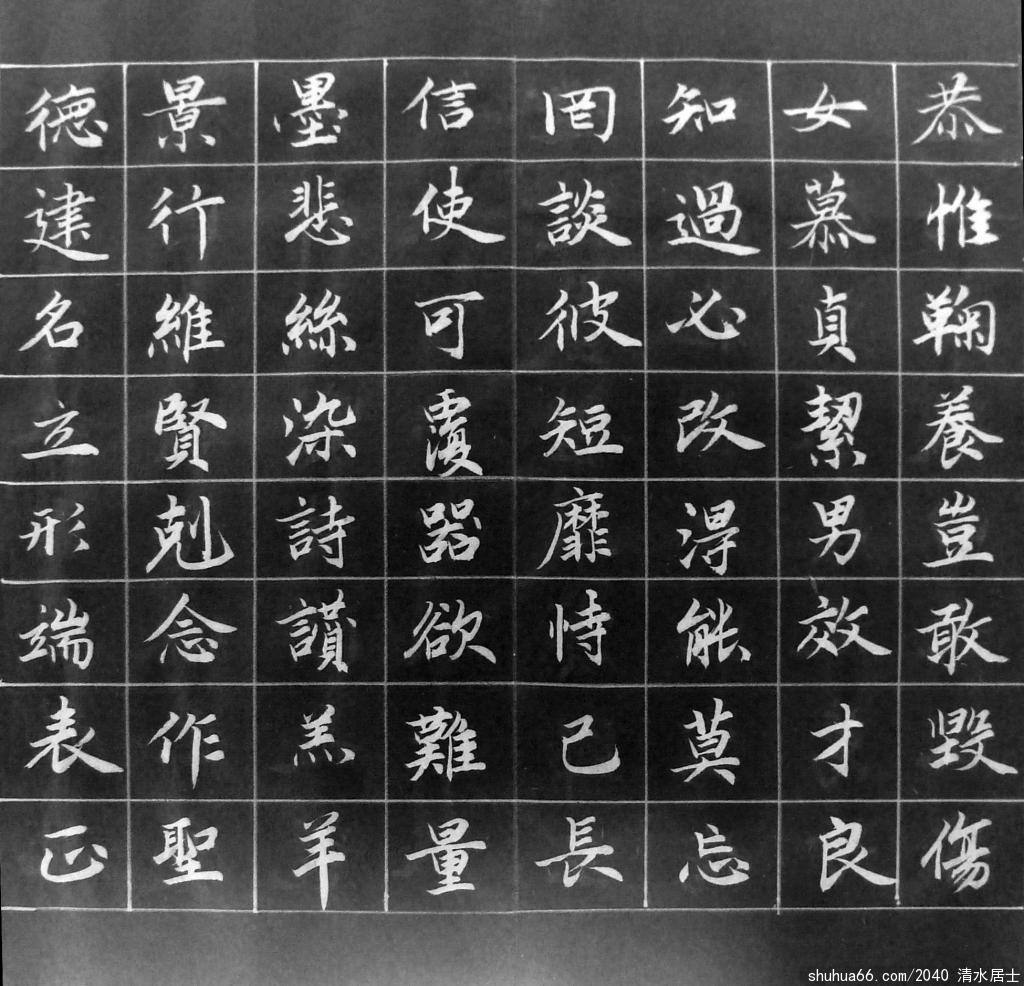 恭惟鞠養豈敢毀傷
女慕貞絜男效才良
知過必改得能莫忘
罔談彼短靡恃己長
信使可覆器欲難量
墨悲絲染詩讚羔羊
景行維賢剋念作聖
德建名立形端表正
shuhua66.com/2040 清水居士